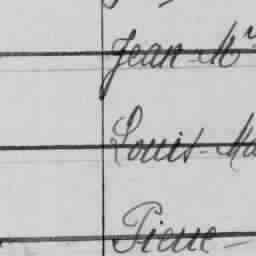 Jean-Mr
Louis-Ma
Pierre-